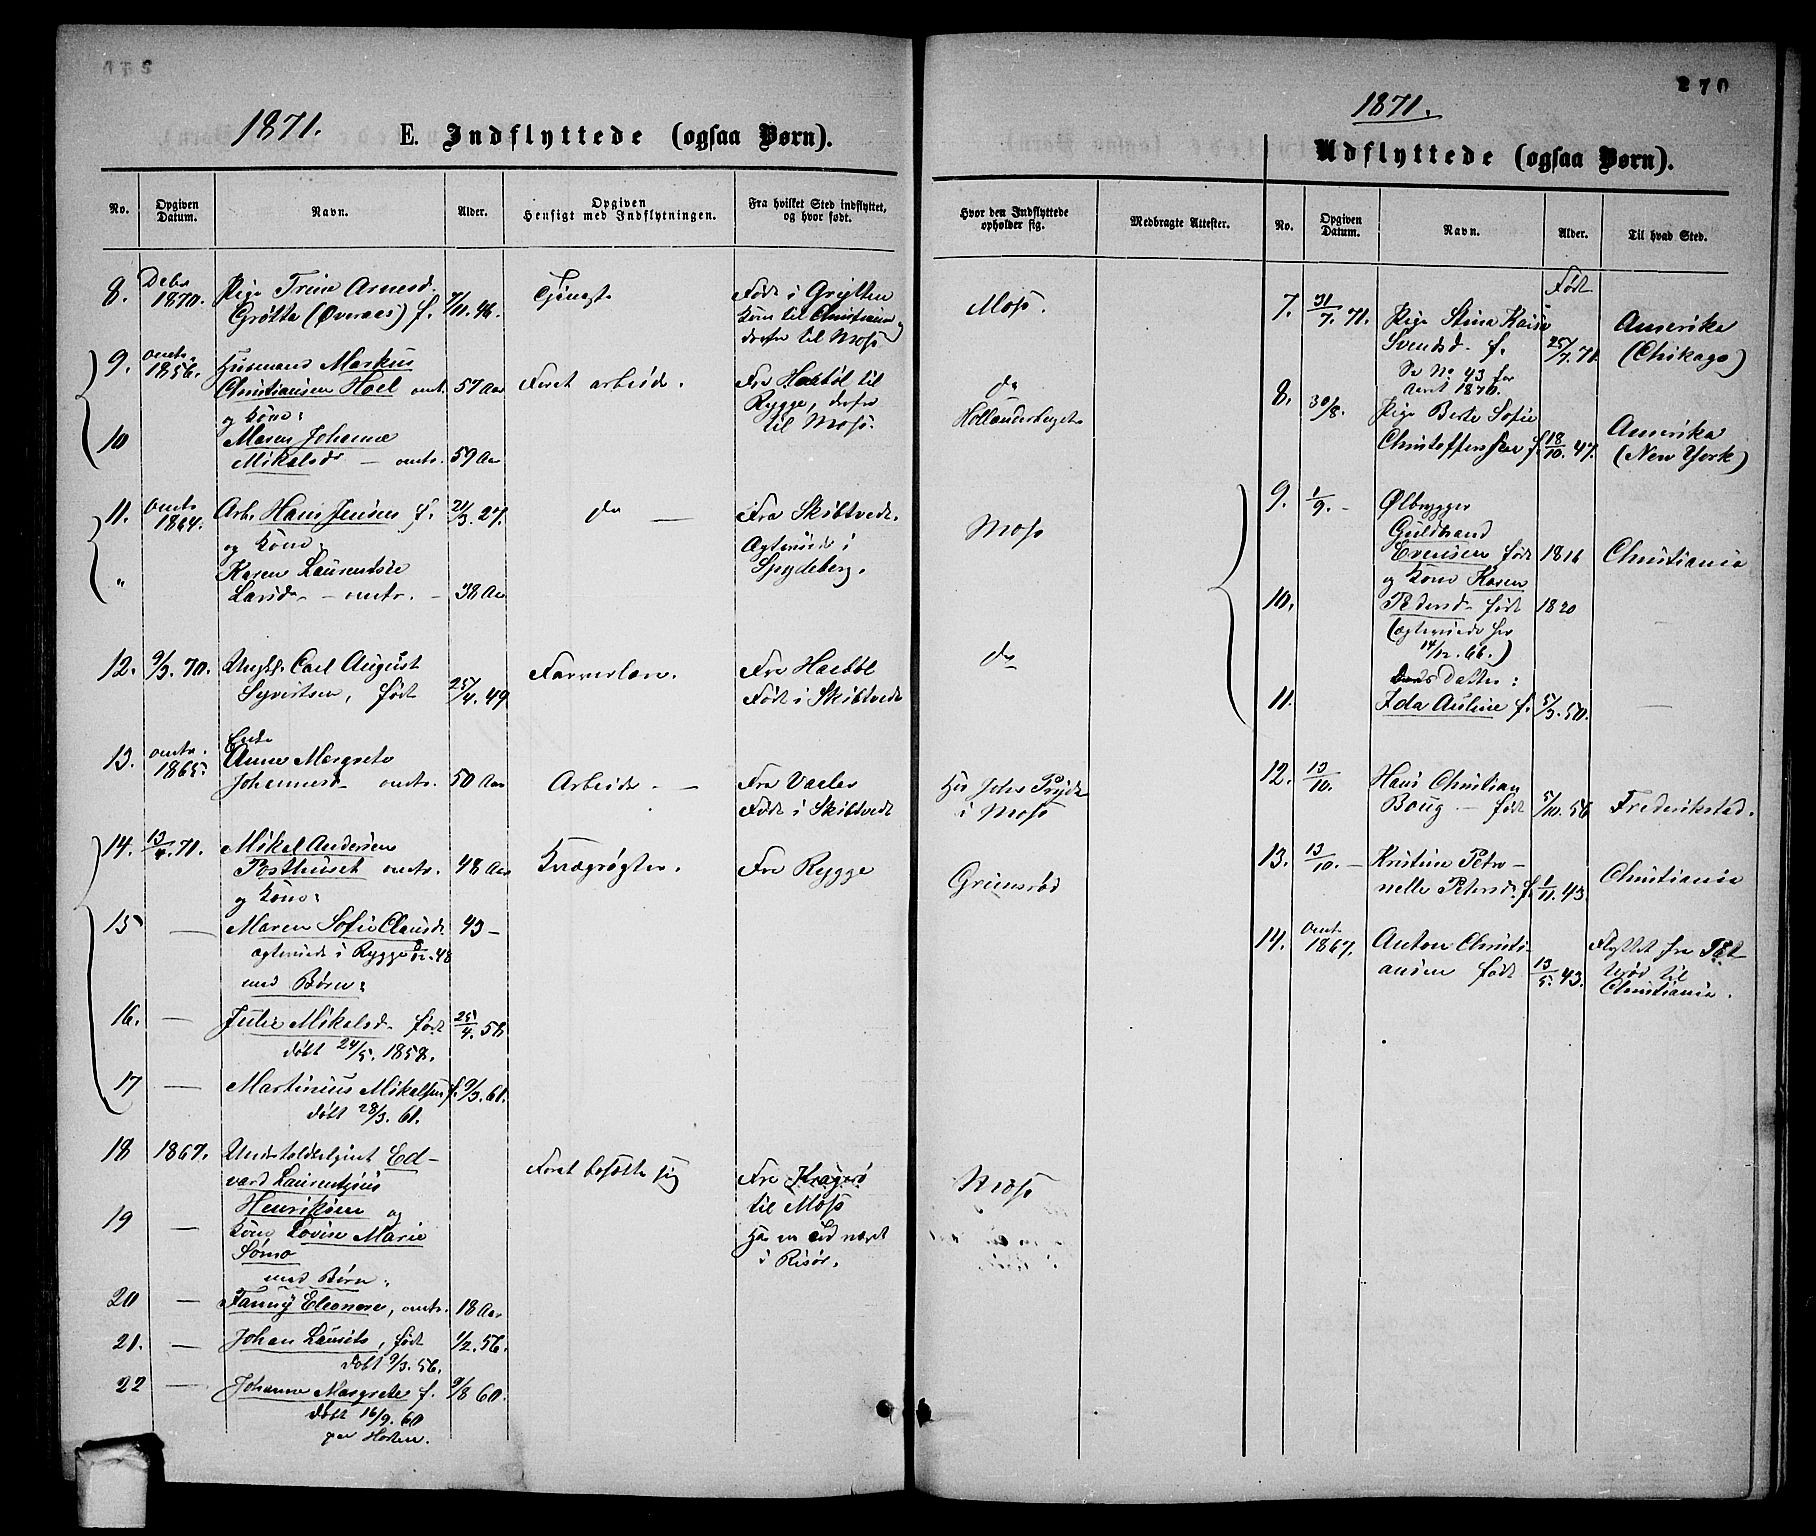 270
1871.
E. Indflyttede (ogsaa Børn).
No.
Opgiven Datum.
Navn.
Alder.
Opgiven Hensigt med Indflytningen.
Fra hvilket Sted indflyttet, og hvor født.
Hvor den Indflyttede opholder sig.
Medbragte Attester.
8. Debr 1870. Pige Trine Arnesd. 7/11. 48. Tjeneste Født i Grytten Moss.
Grøtta (Øveraas) f. kom til Christiania og
derfra til Moss
9. omtr. 1856. Husmand Markus
Christiansen Hoel omtr. 57 Aar Faret arbeide. Fra Haabøl til do
og Kone: Rygge, derfra Hollænderbaget
10 Maren Johanne til Moss.
Mikalsdr — omtr. 59 Aar
11. omtr 1864. Arb. Hans Jensen f. 21/3. 27. do — Fra Skibtvedt. Moss
og Kone Ægteviede i
" Karen Laurentse Spydeberg.
Larsdr — omtr. — 38 Aar
12. 9/3. 70. Ungk. Carl August Farverlære. Fra Haabøl do
Syvertsen, født 25/4. 49 Født i Skibtvedt
13. omtr. 1865. Enke
Anne Margrete
Johannesd omtr. 50 Aar Arbeide. — Fra Vaaler Hos Johs Pryds
Født i Skibtvedt i Moss
14. 13/4. 71. Mikel Andersen
Posthuset omtr. 48 Aar Kvægrøgter. Fra Rygge Grimsrød
og Kone:
15 — Maren Sofie Clausd. 43 —
ægteviede i Rygge 48
med Børn:
16. — Julie Mikelsd. født 25/4. 58
døbt 24/5. 1858.
17 — Martinius Mikelsen f. 9/3. 61.
døbt 28/3. 61.
18 1867. Ed-
vard Laurentzius Faret bosætte sig Fra Kragerø Moss
Henriksen og til Moss
19 — Kone Lovise Marie
Sømo i Risør.
med Børn:
20 — Fanny Eleonore, omtr. 18 Aar
21. — Johan Lauritz, født 1/2. 56.
døbt 9/3. 56.
22 — Johanne Margrete f. 9/8 60.
døbt 16/9. 60
paa Horten.
1871.
Udflyttede (ogsaa Børn).
No.
Opgiven Datum.
Navn.
Alder.
Til hvad Sted.
Født
7. 31/7. 71. Pige Stina Kaisa Amerika
Svendsd. f. 25/7. 71. (Chikago)
Se No 43 for
Aaret 1870.
8. 30/8. Pige Berte Sofie Amerika
Christoffersen f. 18/10. 47. (New York)
9. 1/9. — Ølbrygger
Guldbrand
Evensen født 1816 Christiania
og Kone Karen
10. Pedersd. født 1820 —
(ægteviede her
14/12. 66.)
Datter:
11. Ida Auline f. 5/3. 50. —
12. 13/10. Hans Christian
Boug — født 5/10. 56 Frederikstad.
13. 13/10. — Kristine Petro-
nelle Petersd. f. 1/11. 43. Christiania
14. omtr 1867. Anton Christi- Flyttet fra
ansen født 13/5. 43. til
Christiania.